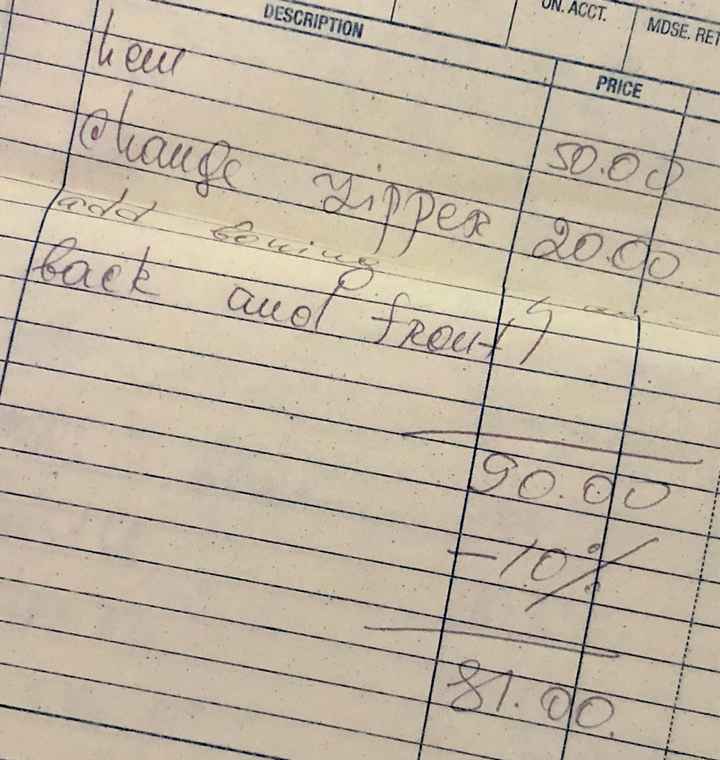 ON. ACCT. MDSE. RET
DESCRIPTION PRICE
hem 50.00
change zipper 20.00
add boning
back and front)
90.00
-10%
81.00.